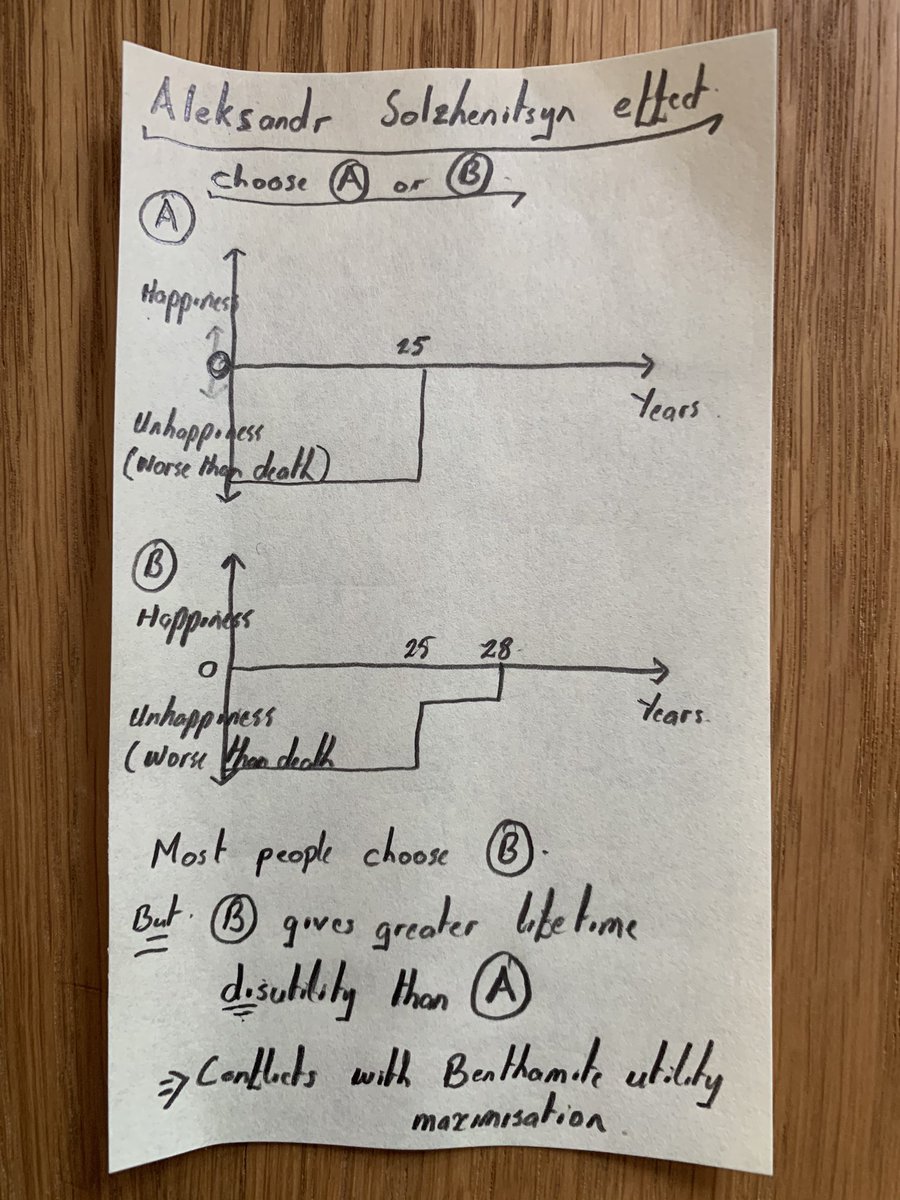 Aleksandr Solzhenitsyn effect.
choose A or B.
A
Happiness
0
25
Years
Unhappiness
(Worse than death)
B
Happiness
25 28
0
Years
Unhappiness
(Worse than death
Most people choose B.
But B gives greater lifetime
disutility than A
=> Conflicts with Benthamite utility
maximisation